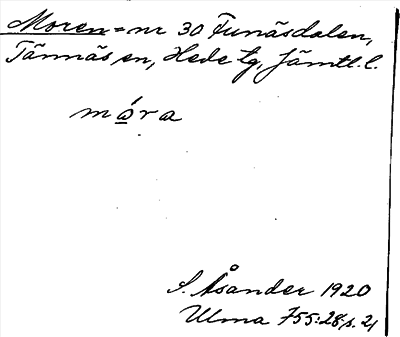 Moren = nr 30 Funäsdalen,
Tännäs sn, Hede tg, Jämtl. l.
mó̲ra
S. Åsander 1920
Ulma 755:28 s. 21